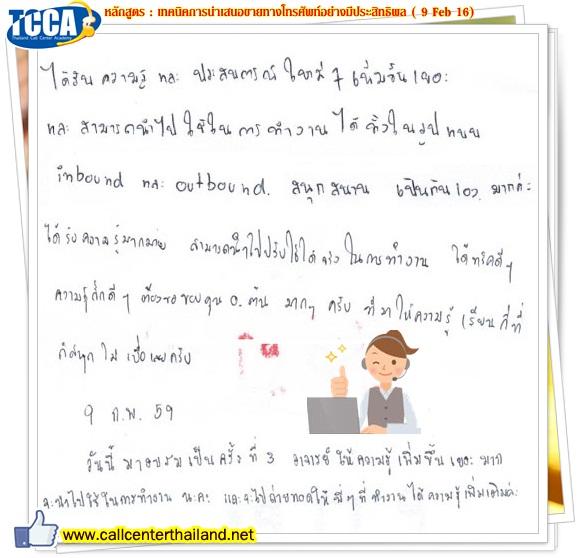 TCCA
Thailand Call Center Academy
หลักสูตร : เทคนิคการนำเสนอขายทางโทรศัพท์อย่างมีประสิทธิพล ( 9 Feb 16)
ได้รับ ความรู้ และ ประสบการณ์ ใหม่ ๆ เพิ่มขึ้น เยอะ
และ สามารถนำไป ใช้ใน การ ทำงาน ได้ ทั้งใน รูป แบบ
inbound และ outbound. สนุก สนาน เป็นกันเอง มากค่ะ
ได้รับ ความรู้มากมาย สามารถนำไปปรับใช้ได้ จริง ในการ ทำงาน ได้ทริคดี ๆ
ความรู้สึกดี ๆ ต้องขอ ขอบคุณ อ. ต้น มากๆ ครับ ที่มา ให้ความรู้ เรียน กี่ที่
ก็สนุก ไม่ เบื่อ เลยครับ
9 ก.พ. 59
วันนี้ มาอบรม เป็น ครั้ง ที่ 3 อาจารย์ ให้ ความรู้ เพิ่มขึ้น เยอะ มาก
จะนำไปใช้ ในการทำงาน นะคะ และจะไปถ่ายทอดให้ พี่ๆ ที่ ทำงาน ได้ ความรู้ เพิ่มเติมค่ะ
www.callcenterthailand.net